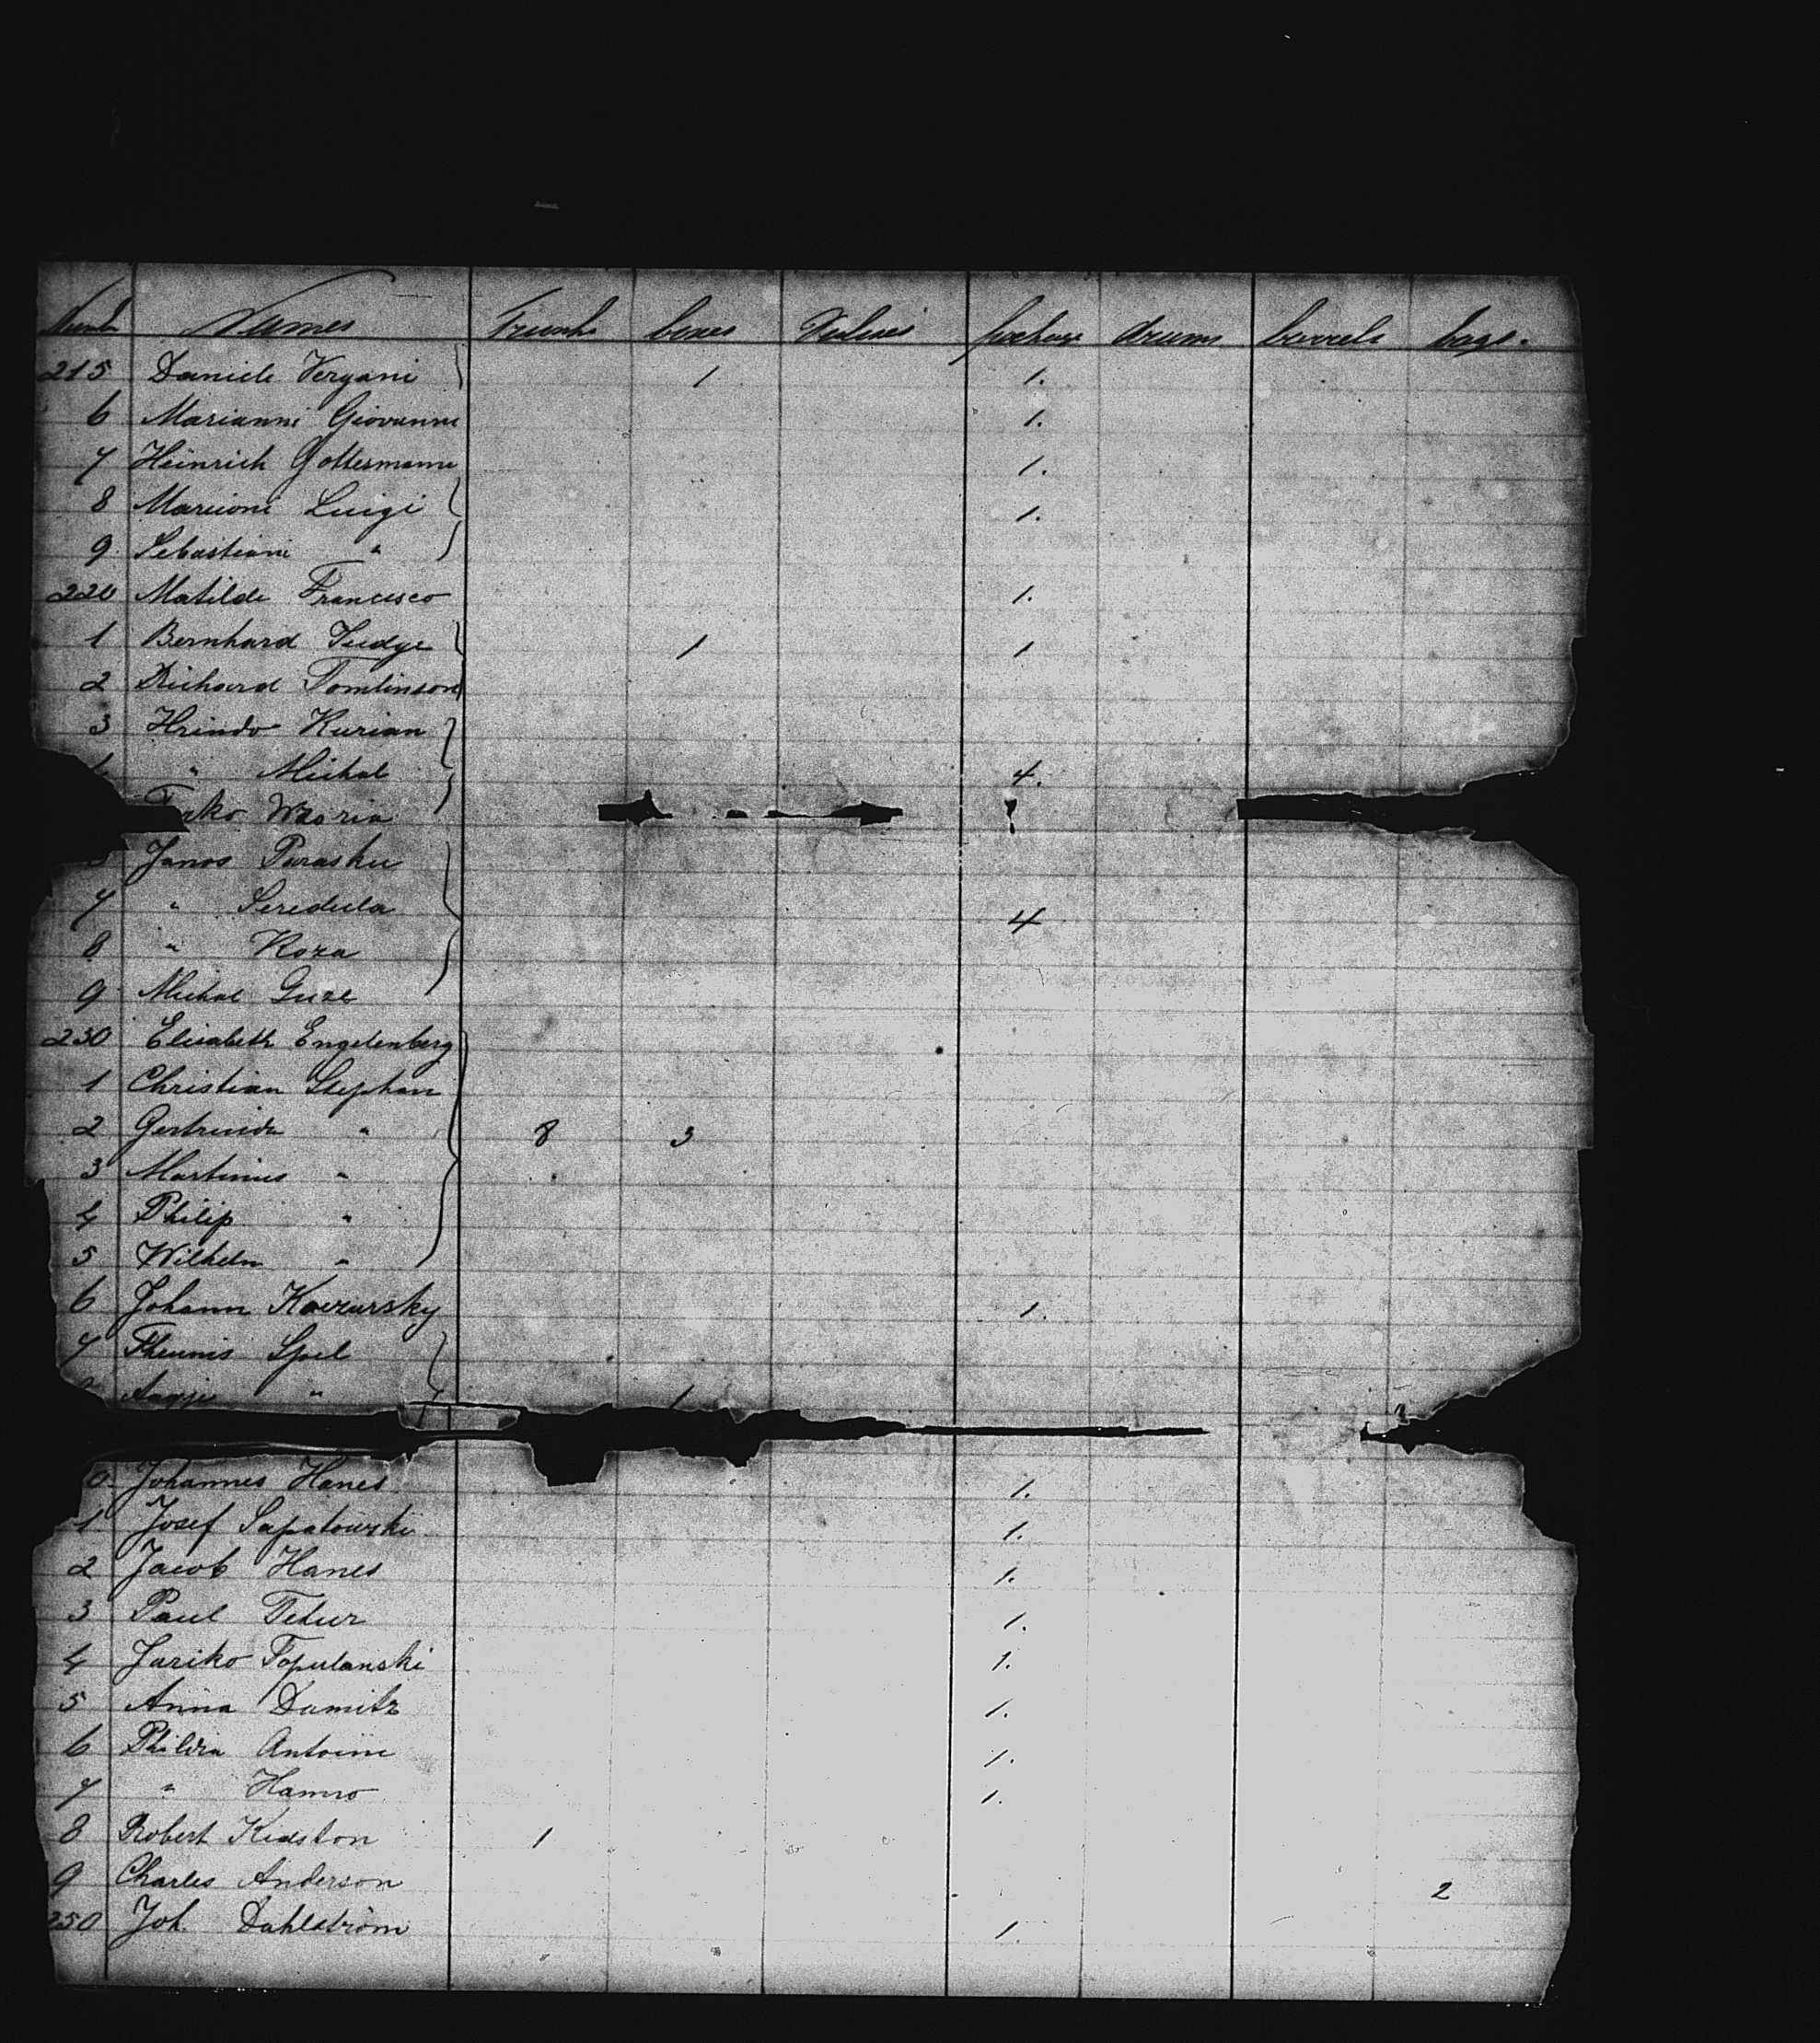 Names Trunks boxes Valises package drums barrels bags.
215 Daniele Vergani 1 1.
6 Marianni Giovanni 1.
7 Heinrich Gottermann 1.
8 Marcioni Luigi 1.
9 Sebastiani "
220 Matilde Francesco 1.
1 Bernhard Judge 1 1
2 Richard Tomlinson
3 Hrindo Kurian
" Michal 4.
Janos Parasku
7 " Seredula 4
8 " Roza
9 Michal Guze
230 Elisabeth Engelenberg
1 Christian Stephan
2 " 8 3
3 Martinus "
4 Philip "
5 Wilhelm "
6 Johann 1.
7 Theunis Spel
Aagje " 1
0 Johannes Hanes 1.
1 Josef Sapatowski 1.
2 Jacob Hanes 1.
3 Paul 1.
4 Jariko Topulanski 1.
5 Anna Damitz 1.
6 Antoine 1.
7 " 1.
8 Robert Kidston 1
9 Charles Anderson 2
250 Joh. Dahlström 1.